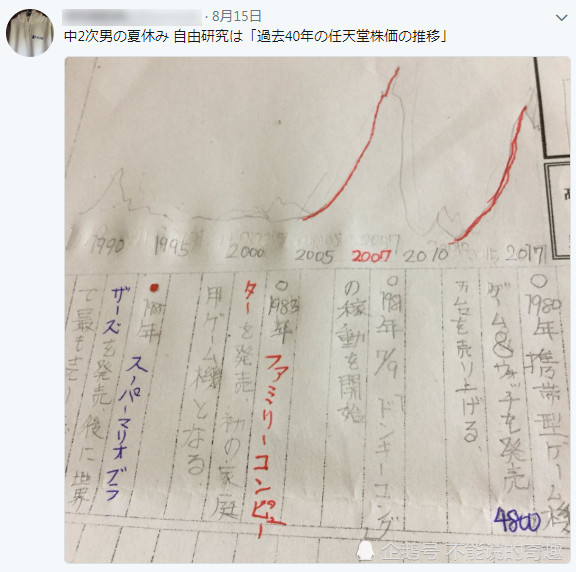 · 8月15日
中2次男の夏休み 自由研究は「過去40年の任天堂株価の推移」
1990 1995 2000 2005 2007 2010 2015 2017
○1980年 携帯型ゲーム機
ゲーム&ウォッチを発売
を売り上げる、
4800
○1981年 7/9 ドンキーコング
の稼動を開始
○1983年 ファミリーコンピュー
ターを発売 初の家庭
用ゲーム機となる
年 スーパーマリオブラ
ザーズを発売、後に世界
で最も売
企鹅号 不能说的奇趣